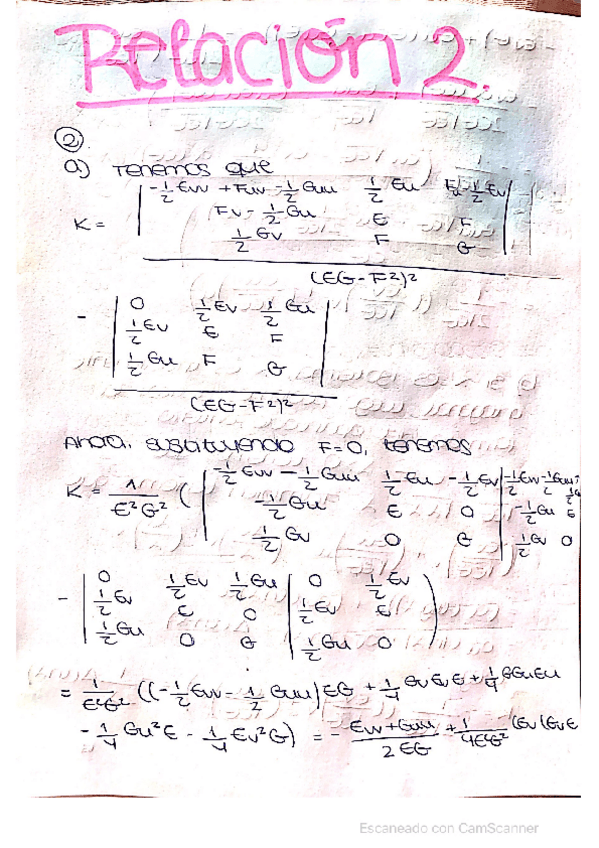 Relación 2.
②.
a) Tenemos que
-1/2 Evv + Fuv - 1/2 Guu   1/2 Eu   Fu - 1/2 Ev
K =   Fv - 1/2 Gu   E   F
1/2 Gv   F   G
(EG-F²)²
-   0   1/2 Ev   1/2 Gu
1/2 Ev   E   F
1/2 Gu   F   G
(EG-F²)²
Ahora, sustituyendo F=0, tenemos
K = 1/E²G² ( | -1/2 Evv - 1/2 Guu   1/2 Eu   -1/2 Ev | -1/2 Evv - 1/2 Guu
-1/2 Gu   E   0 | -1/2 Gu   E
1/2 Gv   0   G | 1/2 Gv   0
- | 0   1/2 Ev   1/2 Gu | 0   1/2 Ev
1/2 Ev   E   0 | 1/2 Ev   E
1/2 Gu   0   G | 1/2 Gu   0 )
= 1/E²G² ((-1/2 Evv - 1/2 Guu) EG + 1/4 Gv Ev E + 1/4 G Gu Eu
- 1/4 Gu² E - 1/4 Ev² G) = - Evv + Guu / 2EG + 1/4E²G² (Ev (Gv E
Escaneado con CamScanner